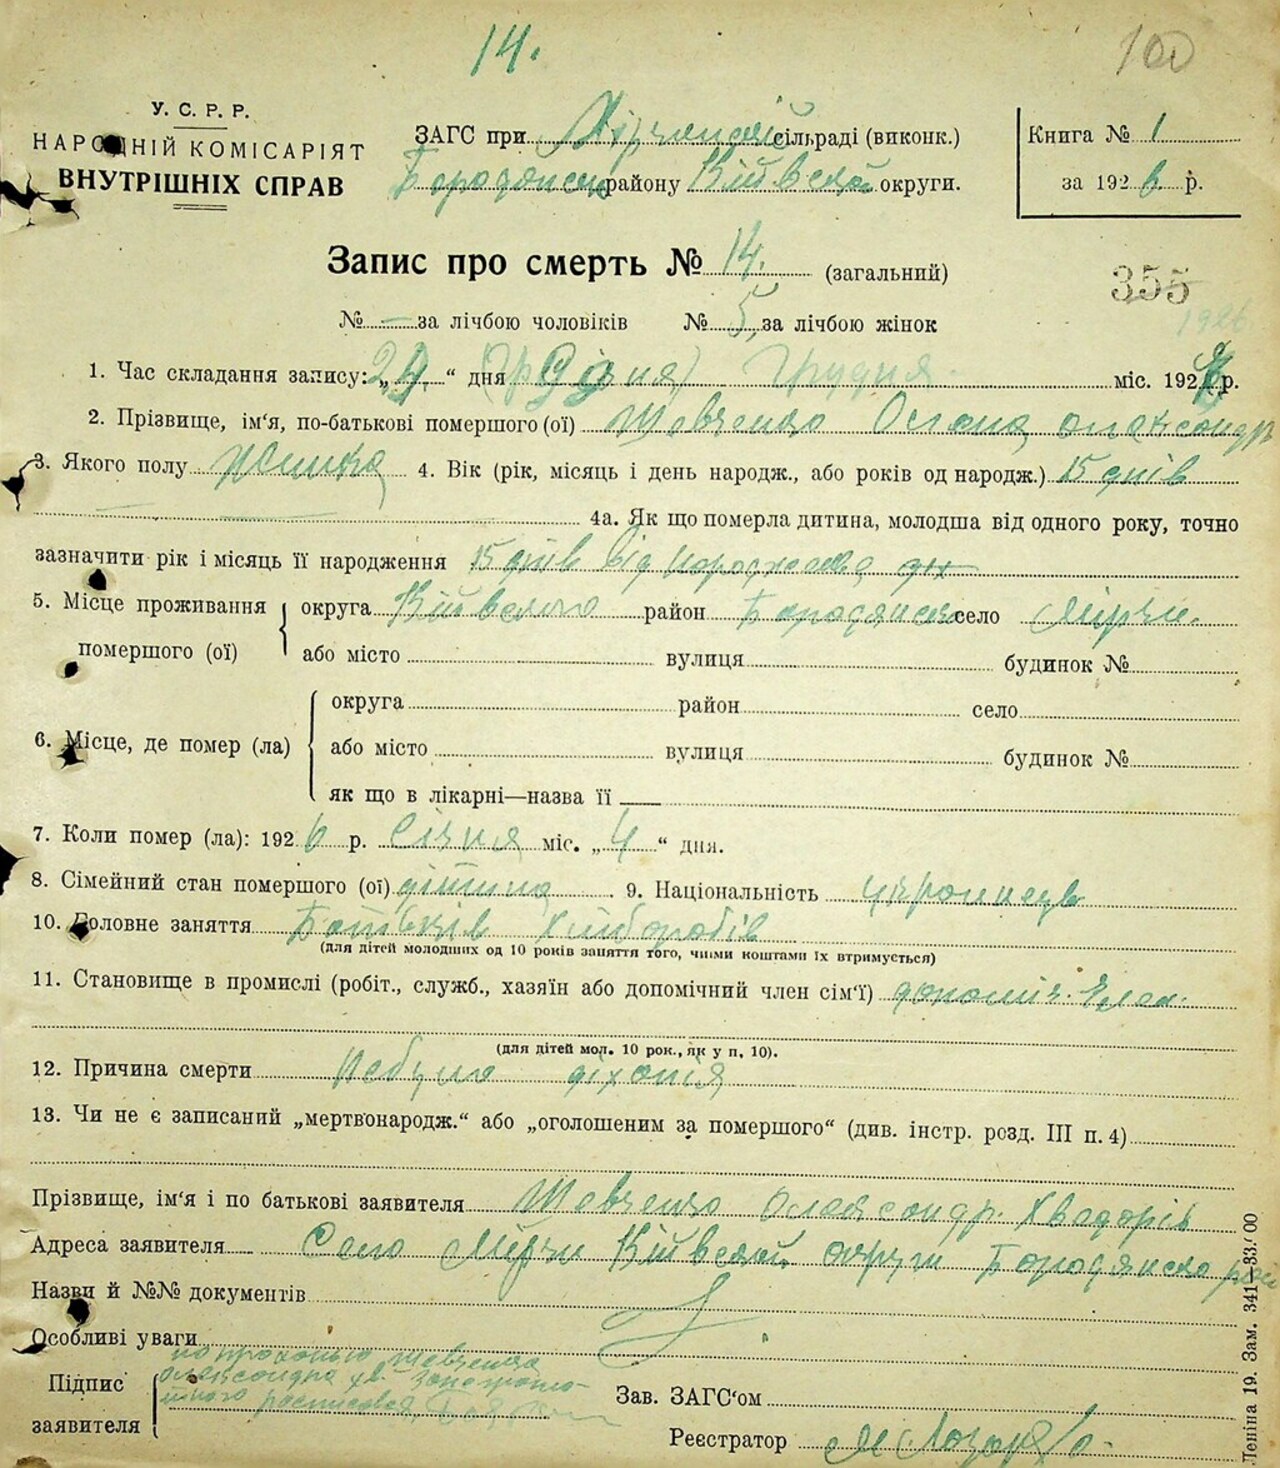 14. 100
У. С. Р. Р.
НАРОДНІЙ КОМІСАРІЯТ
ВНУТРІШНІХ СПРАВ
ЗАГС при сільраді (виконк.)
Бородянськ. району Київської округи.
Книга № 1
за 1926 р.
Запис про смерть № 14. (загальний)
355
1926
№ — за лічбою чоловіків № 5, за лічбою жінок
1. Час складання запису: „24“ дня Грудня міс. 192 р.
2. Прізвище, ім‘я, по-батькові помершого (ої) Шевченко Олександр
3. Якого полу Жінка 4. Вік (рік, місяць і день народж., або років од народж.) 15 днів
4а. Як що померла дитина, молодша від одного року, точно
зазначити рік і місяць її народження 15 днів від народження
5. Місце проживання помершого (ої) округа Київського район Бородянськ село Мірчи.
або місто вулиця будинок №
6. Місце, де помер (ла) округа район село
або місто вулиця будинок №
як що в лікарні—назва її
7. Коли помер (ла): 1926 р. Січня міс. „4“ дня.
8. Сімейний стан помершого (ої) дітина 9. Національність
10. Головне заняття Батьків Хліборобів
(для дітей молодших од 10 років заняття того, чиїми коштами їх втримується)
11. Становище в промислі (робіт., служб., хазяїн або допомічний член сім‘ї) допоміч. член.
(для дітей мол. 10 рок., як у п. 10).
12. Причина смерти
13. Чи не є записаний „мертвонародж.“ або „оголошеним за помершого“ (див. інстр. розд. III п. 4)
Прізвище, ім‘я і по батькові заявителя Шевченко Олександр. Хведорів
Адреса заявителя Село Мірчи Київської округи Бородянско
Назви й №№ документів
Особливі уваги
Підпис заявителя Шевченка
Олександра Хв.
Зав. ЗАГС‘ом
Реєстратор
Леніна 19. Зам. 341—33.